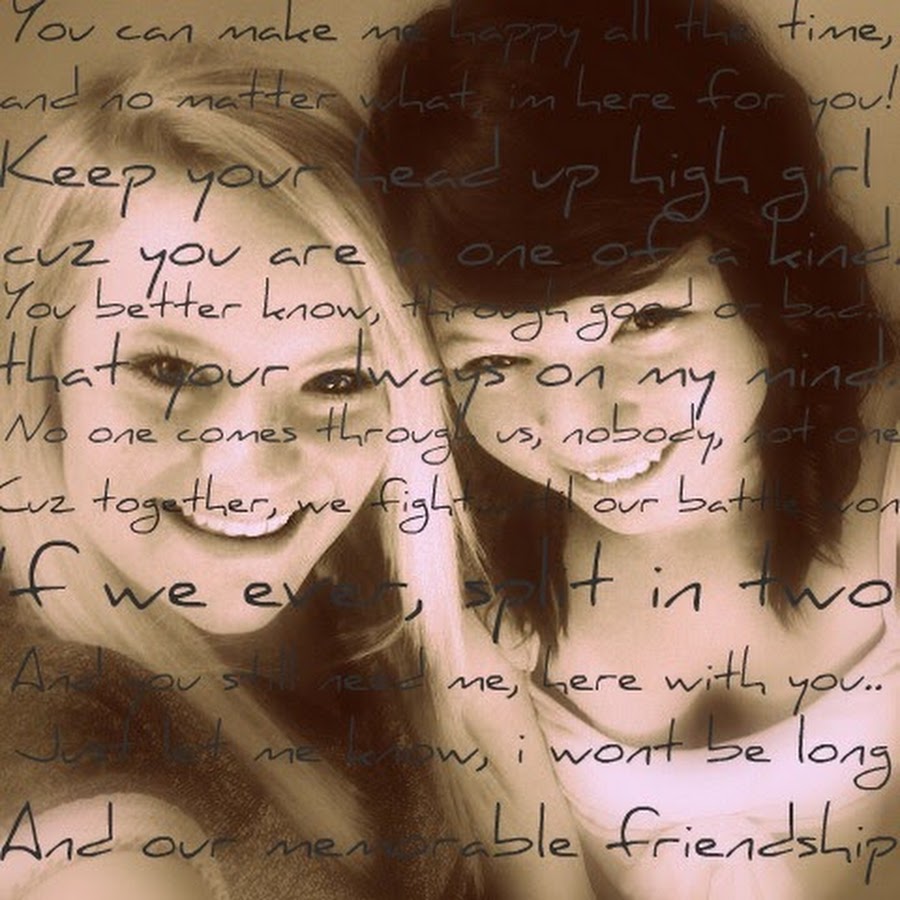 You can make me happy all the time,
and no matter what, im here for you!
Keep your head up high girl
cuz you are a one of a kind.
You better know, through good or bad..
that your lways on my mind.
No one comes through us, nobody, not one
Cuz together, we fight until our battle won
If we ever, split in two
And you still need me, here with you..
Just let me know, i wont be long
And our memorable friendship